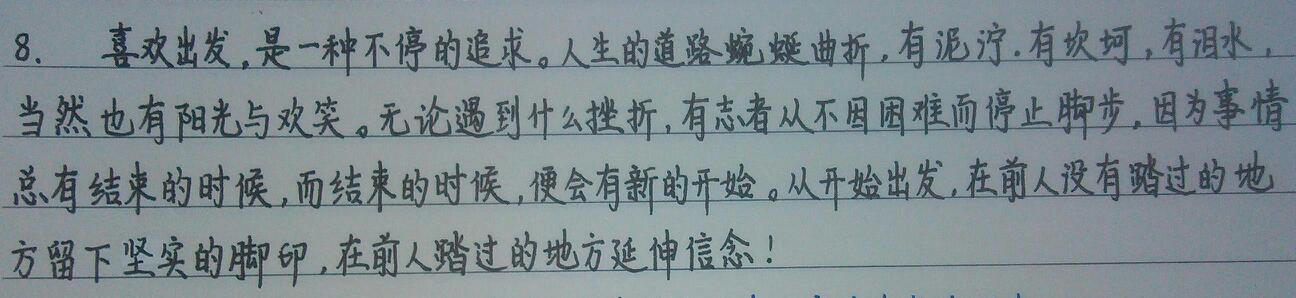 8. 喜欢出发,是一种不停的追求。人生的道路蜿蜒曲折,有泥泞.有坎坷,有泪水,
当然也有阳光与欢笑。无论遇到什么挫折,有志者从不因困难而停止脚步,因为事情
总有结束的时候,而结束的时候,便会有新的开始。从开始出发,在前人没有踏过的地
方留下坚实的脚印,在前人踏过的地方延伸信念!